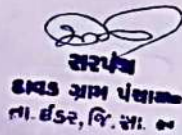 સરપંચ
દાવડ ગ્રામ પંચાયત
તા. ઇડર, જિ. સા. કાં